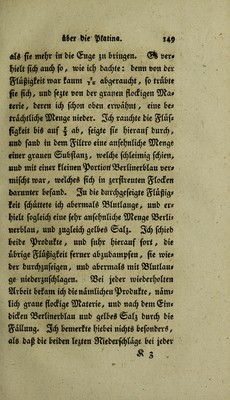 über die Platina. 149
als sie mehr in die Enge zu bringen. Es ver-
hielt sich auch so, wie ich dachte: denn von der
Flüßigkeit war kaum 1/16 abgeraucht, so trübte
sie sich, und sezte von der granen flockigen Ma-
terie, deren ich schon oben erwähnt, eine be-
trächtliche Menge nieder. Ich rauchte die Flüs-
sigkeit bis auf 2/3 ab, seigte sie hierauf durch,
und fand in dem Filtro eine ansehnliche Menge
einer granen Substanz, welche schleimig schien,
und mit einer kleinen Portion Berlinerblau ver-
mischt war, welches sich in zerstreuten Flocken
darunter befand. In die durchgeseigte Flüßig-
keit schüttete ich abermals Blutlauge, und er-
hielt sogleich eine sehr ansehnliche Menge Berli-
nerblau, und zugleich gelbes Salz. Ich schied
beide Produkte, und fuhr hierauf fort, die
übrige Flüßigkeit ferner abzudampfen, sie wie-
der durchzuseigen, und abermals mit Blutlau-
ge niederzuschlagen. Bei jeder wiederholten
Arbeit bekam ich die nämlichen Produkte, näm-
lich graue flockige Materie, und nach dem Ein-
dicken Berlinerblau und gelbes Salz durch die
Fällung. Ich bemerkte hiebei nichts besonders,
als daß die beiden lezten Niederschläge bei jeder
K 3